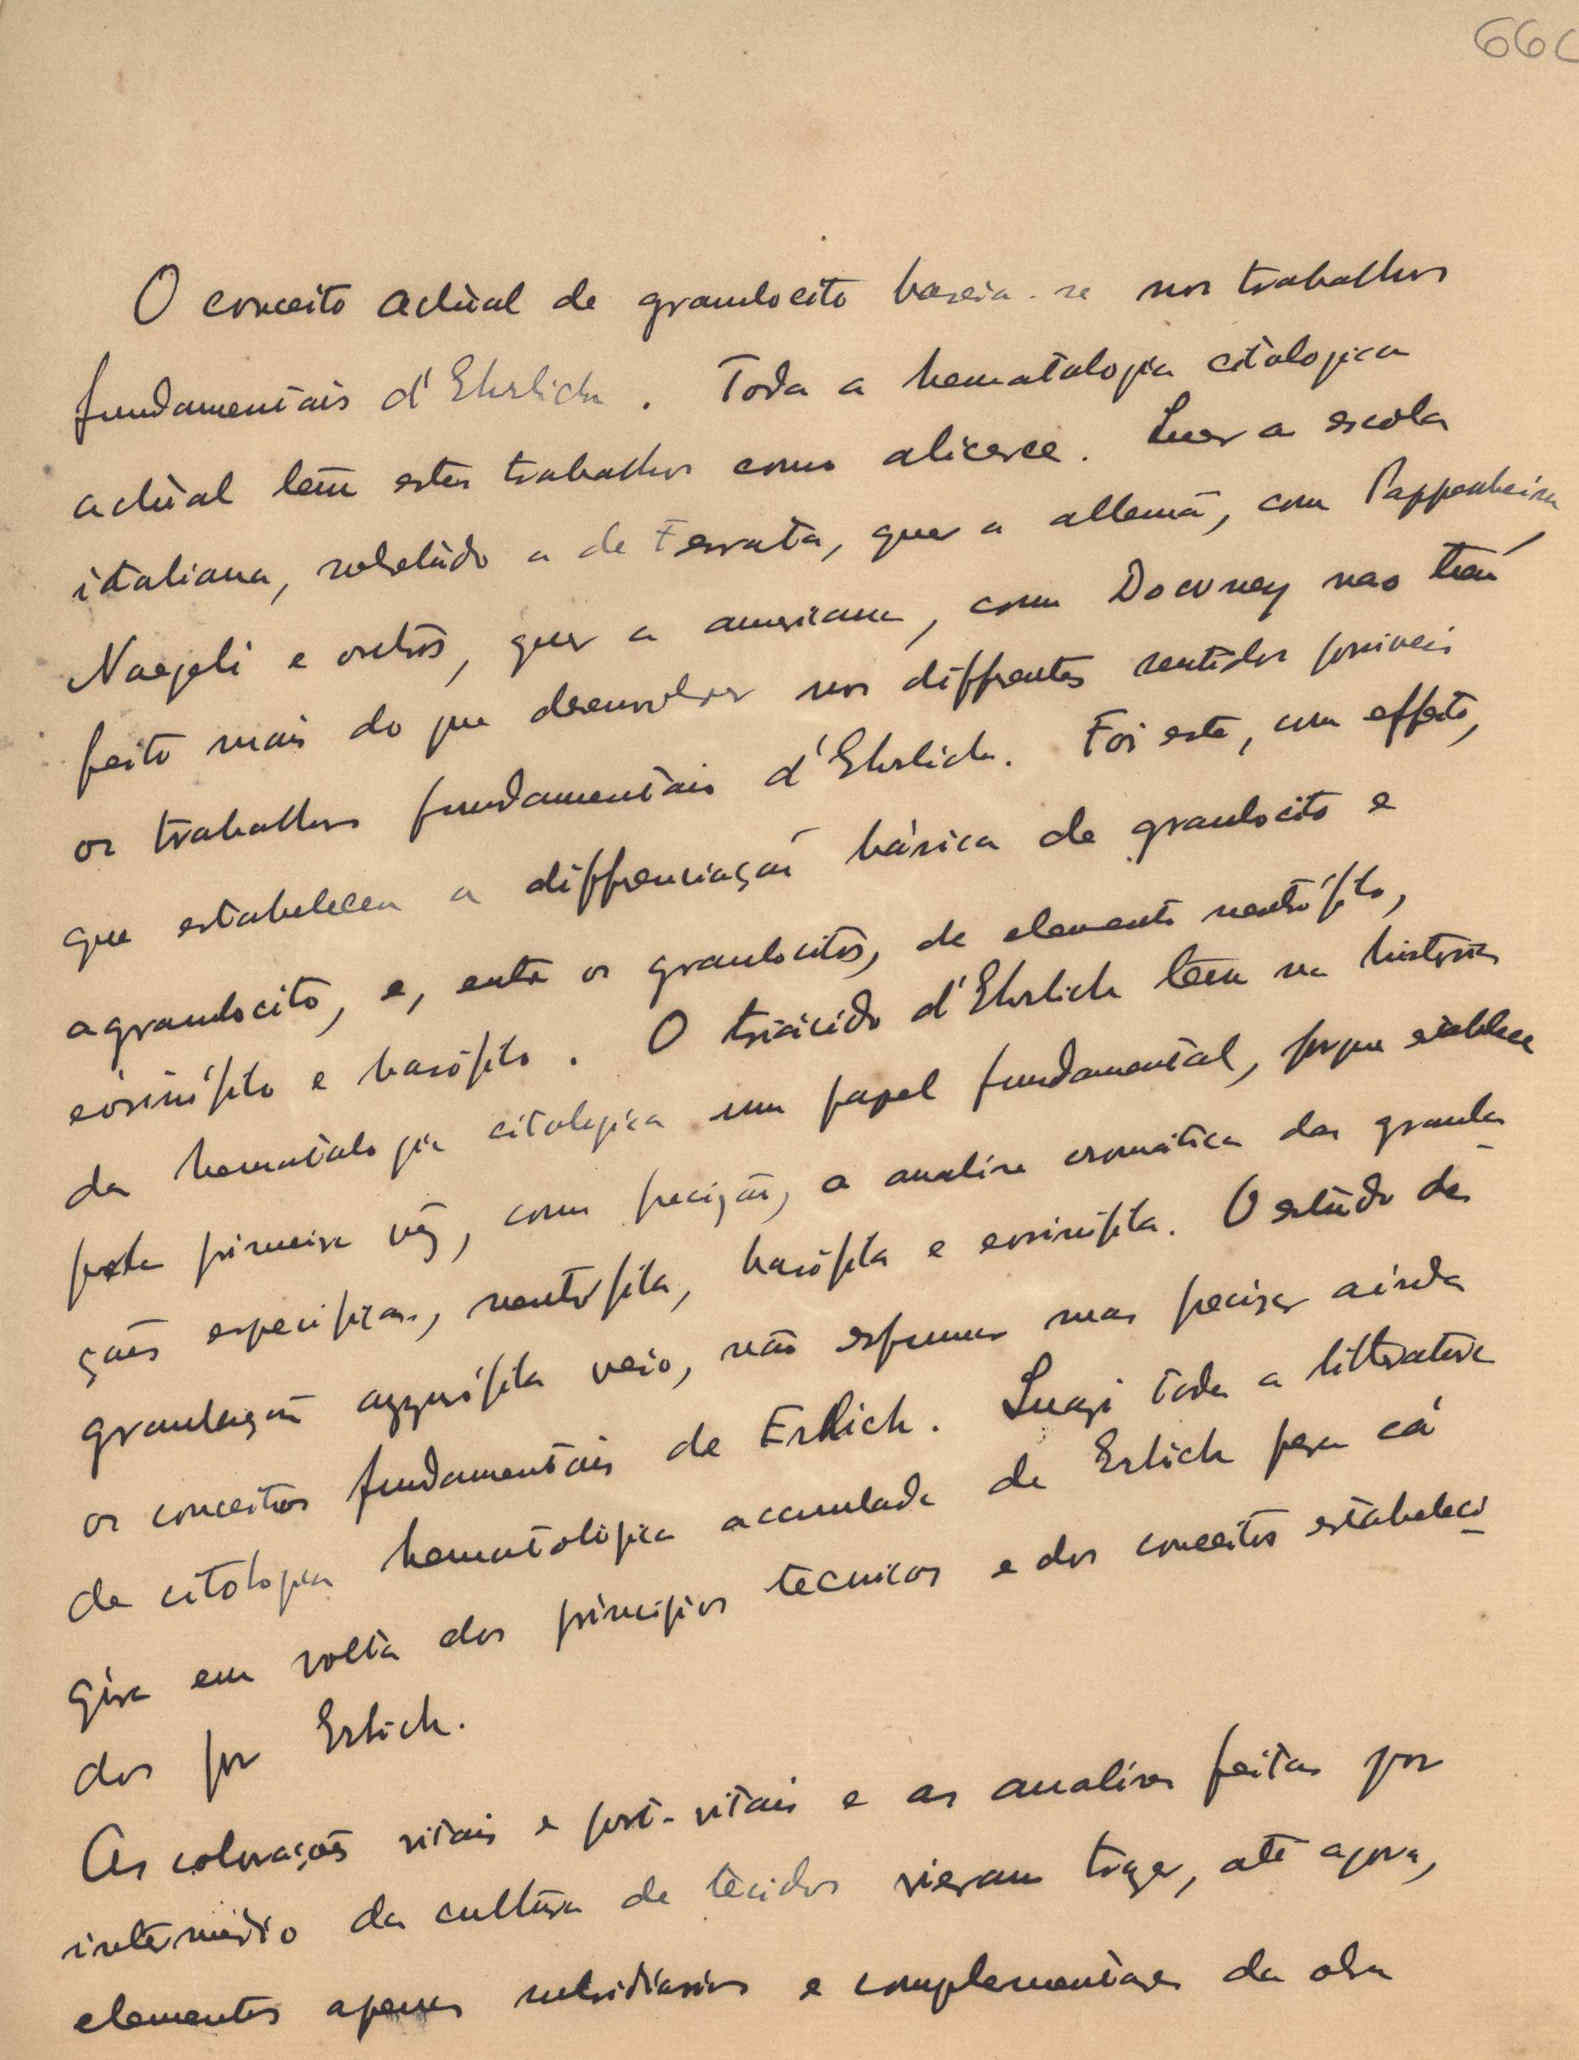 66C
O conceito actual de granulocito baseia-se nos trabalhos
fundamentais d'Ehrlich. Toda a hematologia citologica
actual tem estes trabalhos como alicerce. Quer a escola
italiana, sobretudo a de Ferrata, quer a allemã, com Pappenheim,
Naegeli e outros, quer a americana, com Downey nao tem
feito mais do que desenvolver nos diffrentes sentidos possiveis
os trabalhos fundamentais d'Ehrlich. Foi este, com effeito,
que estabeleceu a diffrenciação básica de granulocito e
agranulocito, e, entre os granulocitos, de elemento neutrófilo,
eósinófilo e basófilo. O triácido d'Ehrlich tem na historia
da hematologia citologica um papel fundamental, porque establece
pela primeira vez, com precizão, a analise cromática das granula-
ções especificas, neutrófila, basófila e eosinófila. O estudo da
granulação azzurófila veio, não esfumar mas precizar ainda
os conceitos fundamentais de Erlich. Quazi toda a litteratura
de citologia hematológica accumulada de Erlich para cá
gira em volta dos principios tecnicos e dos conceitos estabeleci-
dos por Erlich.
As colorações vitais e post-vitais e as analises feitas por
intermédio da cultura de tecidos vieram trazer, até agora,
elementos apenas subsidiarios e complementares da obra